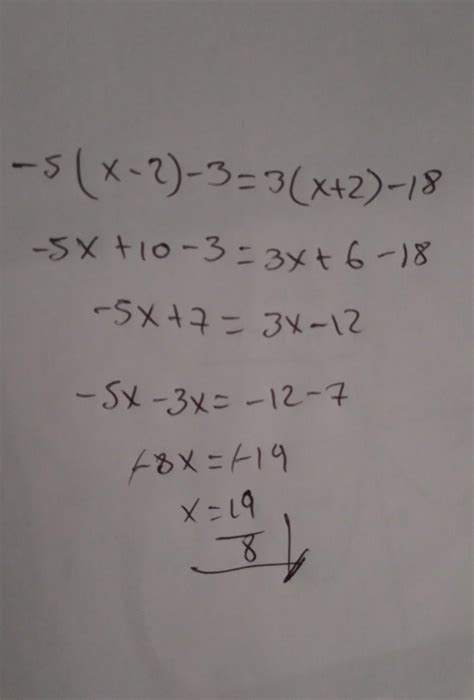 -5(x-2)-3=3(x+2)-18
-5x+10-3=3x+6-18
-5x+7=3x-12
-5x-3x=-12-7
-8x=-19
x=19/8